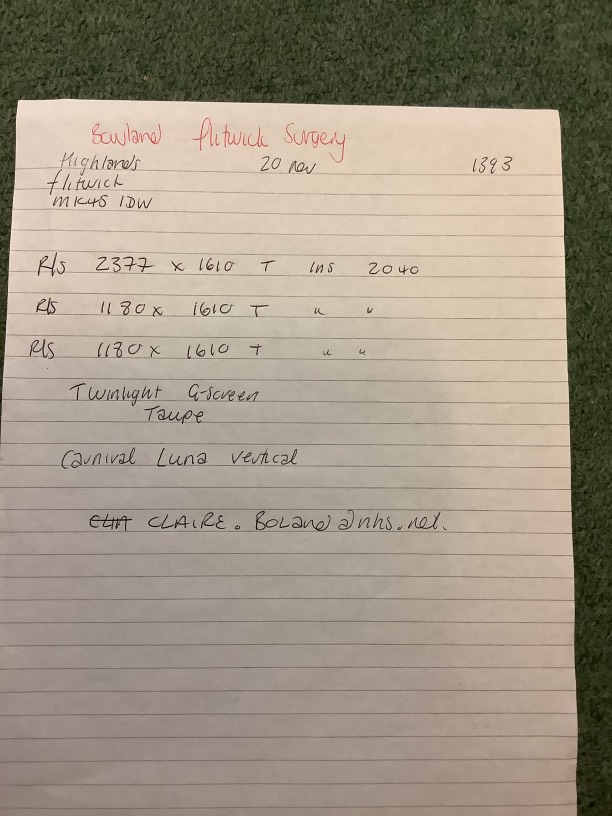 Bowland flitwick Surgery
Highlands 20 nov 1393
flitwick
MK45 1DW
R/S 2377 x 1610 T Ins 2040
R/S 1180 x 1610 T " "
R/S 1180 x 1610 T " "
Twinlight G-Screen
Taupe
Carnival Luna vertical
CLAIRE. Boland@nhs.net.